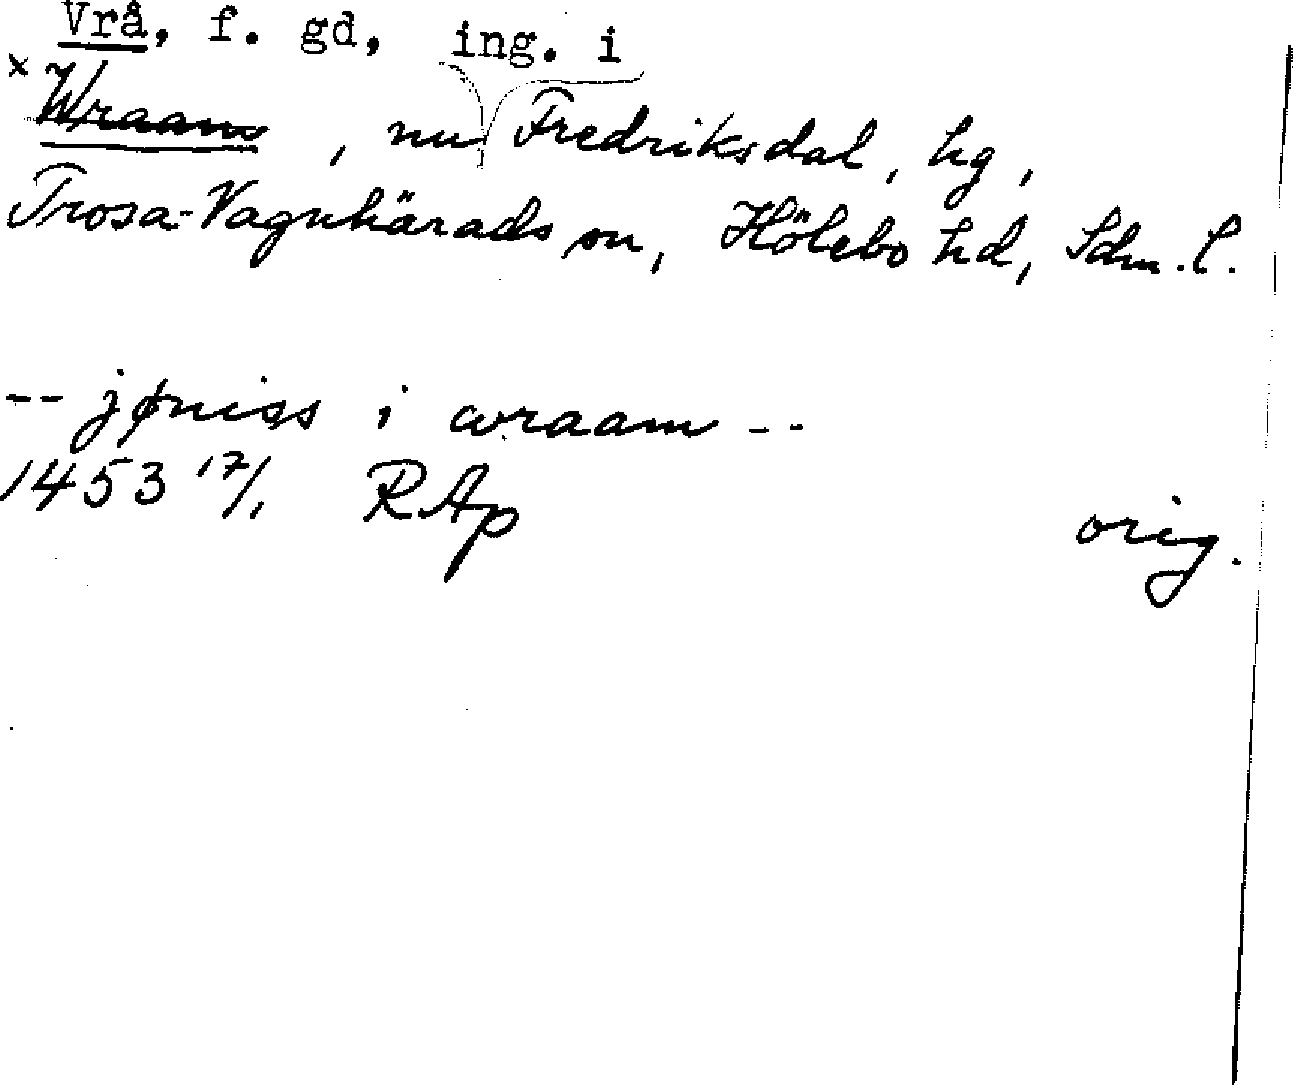 Vrå, f. gd, ing. i
x Wraam, nu Fredriksdal, hg,
Trosa-Vagnhärads sn, Hölebo hd, Sdm. l.
-- jøniss i wraam --
1453 17/1 RAp orig.